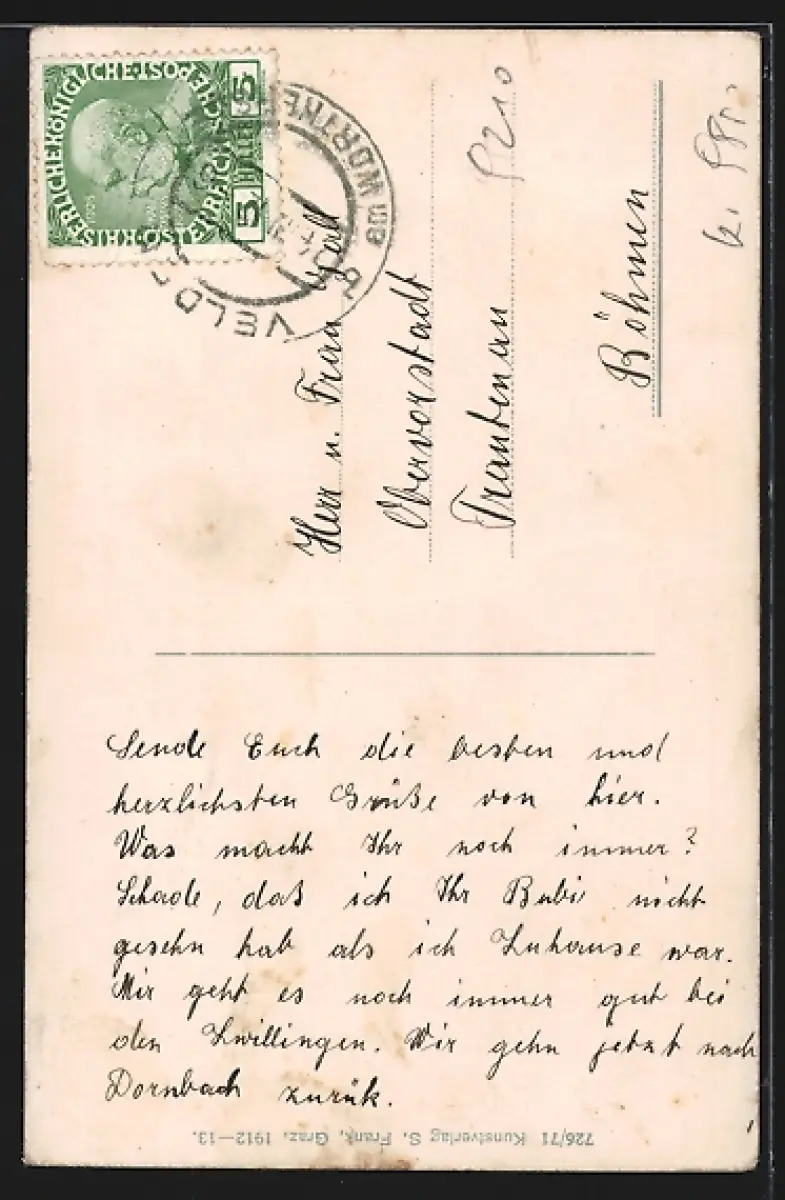 KAISERLICHE KÖNIGLICHE ÖSTERREICHISCHE POST
5 HELLER 5
VELDEN am WÖRTHER
Herr u. Frau
Obervorstadt
Trautenau
Böhmen
9210
Sende Euch die besten und
herzlichsten Grüße von hier.
Was macht Ihr noch immer?
Schade, daß ich Ihr Bubi nicht
gesehn hab als ich Zuhause war.
Mir geht es noch immer gut bei
den Zwillingen. Wir gehn jetzt nach
Dornbach zurük.
726/71 Kunstverlag S. Frank, Graz. 1912—13.